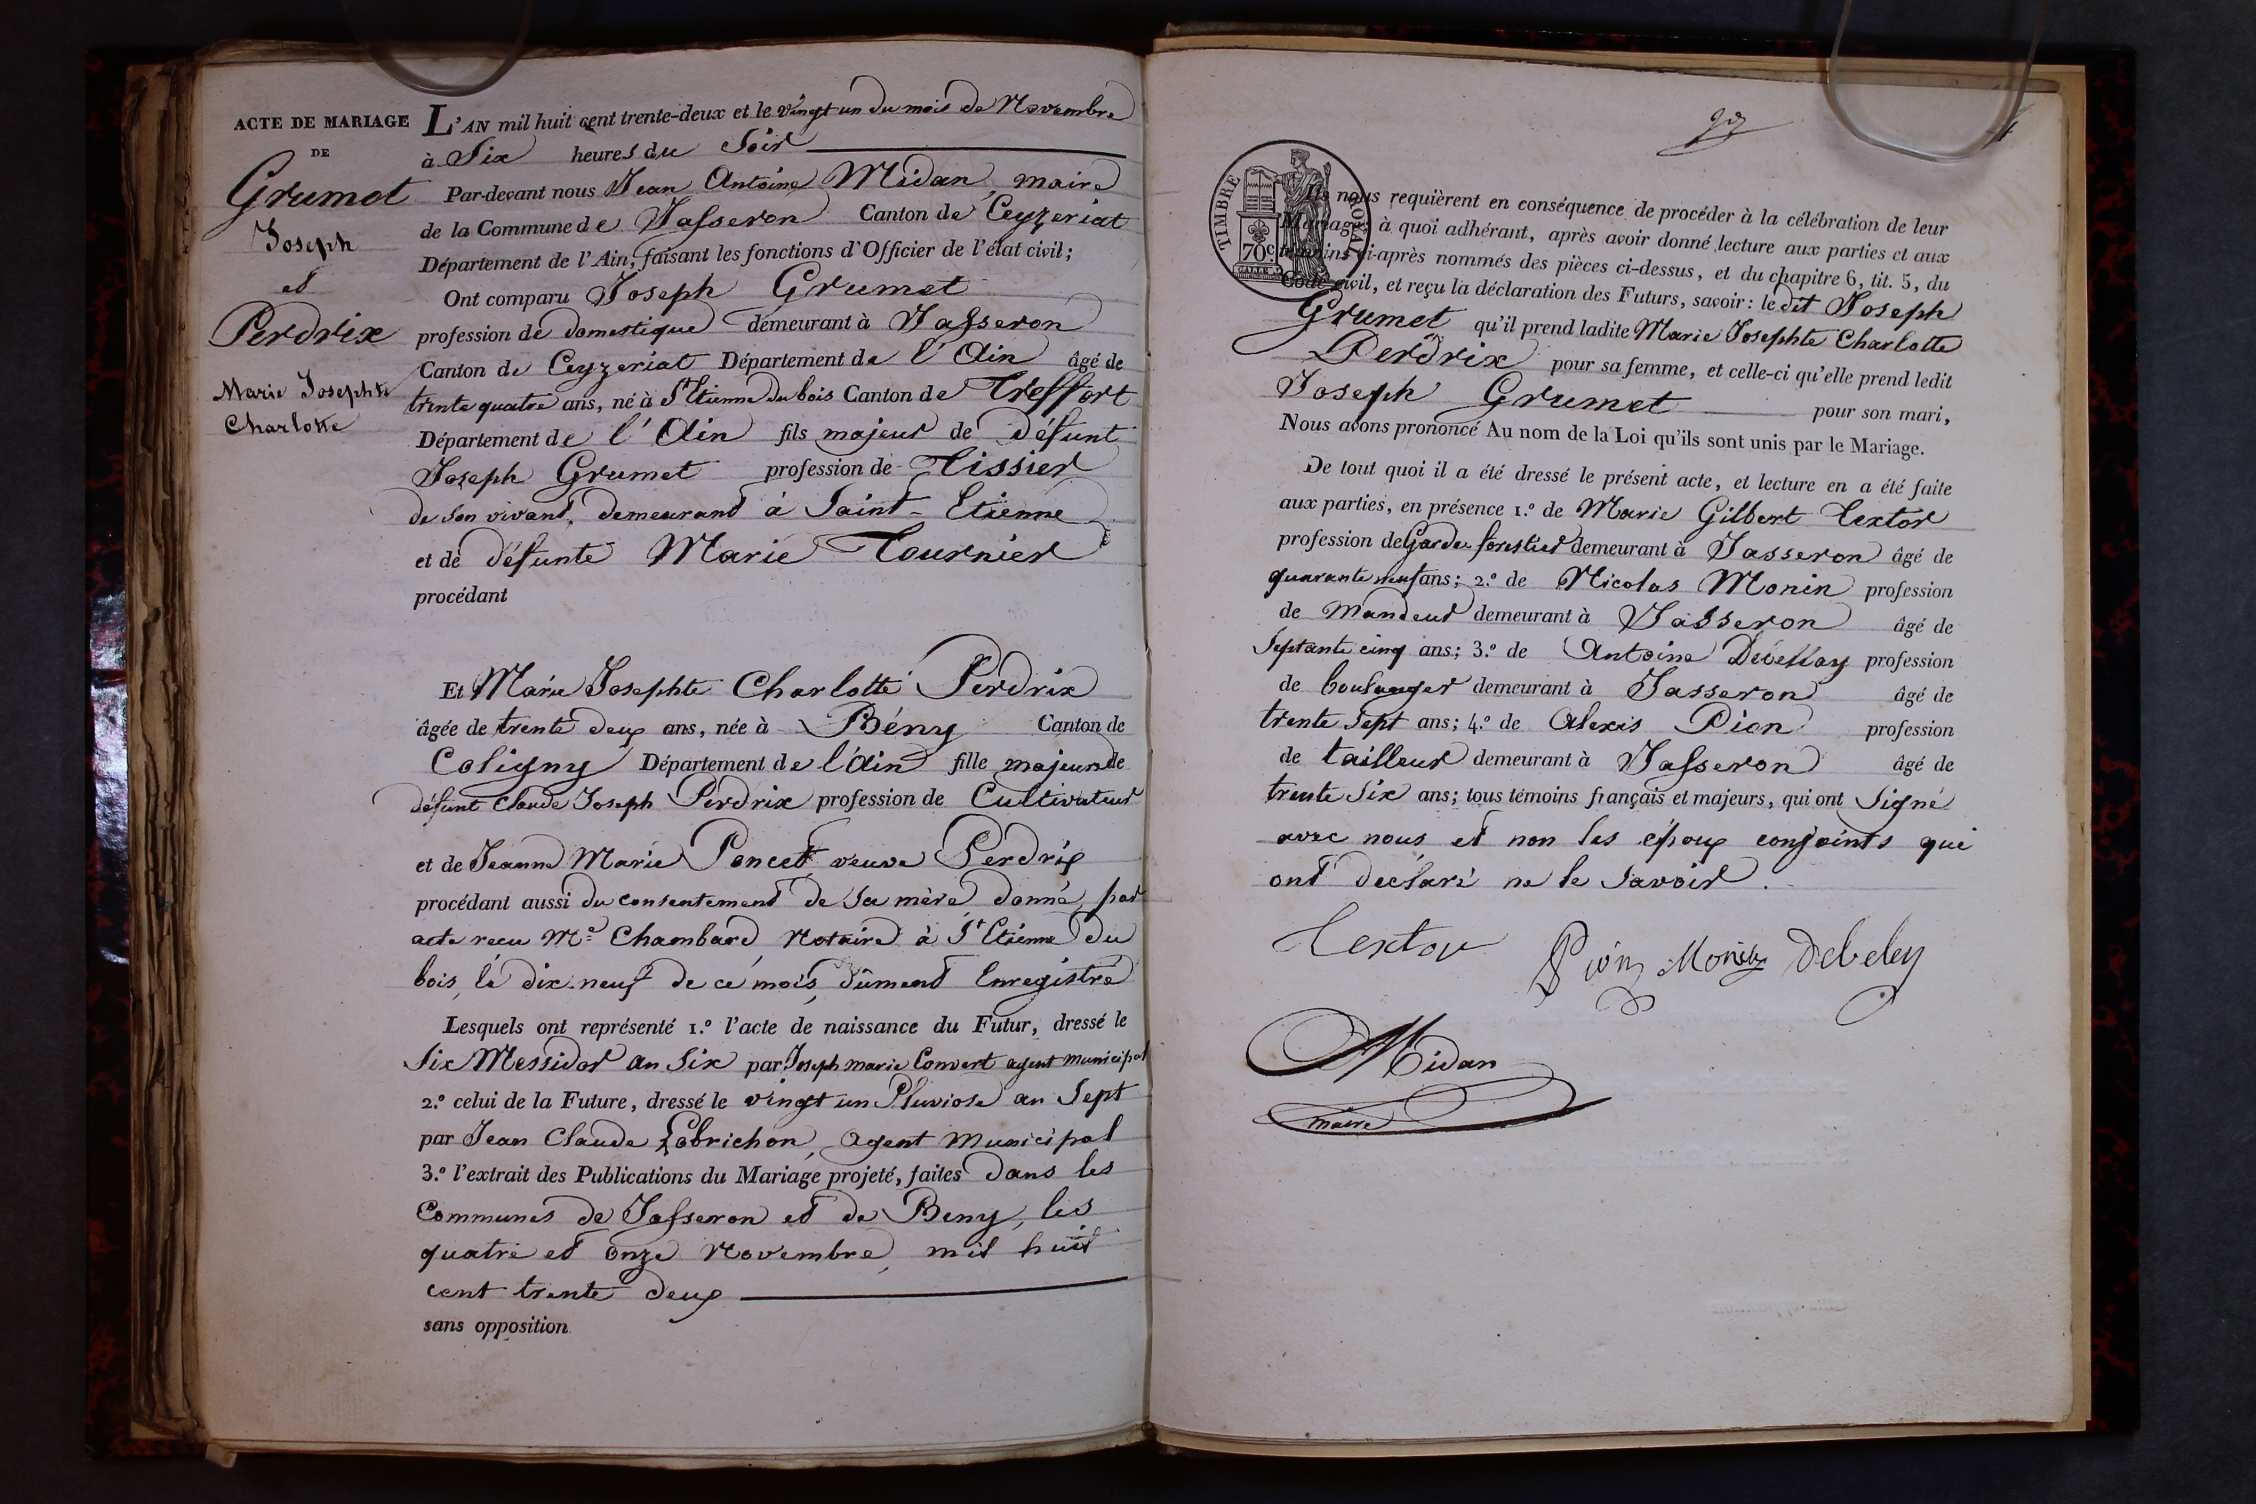 ACTE DE MARIAGE
DE
Grumet
Joseph
et
Perdrix
Marie Josephte
Charlotte
L'AN mil huit cent trente-deux et le vingt un du mois de Novembre
à Six heures du Soir
Par-devant nous Jean Antoine Midan, maire
de la Commune de Jasseron Canton de Ceyzeriat
Département de l'Ain, faisant les fonctions d'Officier de l'état civil;
Ont comparu Joseph Grumet
profession de domestique demeurant à Jasseron
Canton de Ceyzeriat Département de l'Ain âgé de
trente quatre ans, né à St Etienne du bois Canton de Treffort
Département de l'Ain fils majeur de défunt
Joseph Grumet profession de Tissier
de son vivant, demeurant à Saint-Etienne
et de défunte Marie Tournier
procédant
Et Marie Josephte Charlotte Perdrix
âgée de trente deux ans, née à Bény Canton de
Coligny Département de l'Ain fille majeure de
défunt Claude Joseph Perdrix profession de Cultivateur
et de Jeanne Marie Poncet, veuve Perdrix
procédant aussi du consentement de sa mère donné, par
acte recu Me Chambard Notaire à St Etienne du
bois, le dix-neuf de ce mois, dûment Enregistré
Lesquels ont représenté 1.º l'acte de naissance du Futur, dressé le
Six Messidor an Six par Joseph marie Convert agent municipal
2.º celui de la Future, dressé le vingt un Pluviose an Sept
par Jean Claude Labrichon, agent municipal
3.º l'extrait des Publications du Mariage projeté, faites dans les
Communes de Jasseron et de Beny, les
quatre et onze Novembre, mil huit
cent trente deux
sans opposition
TIMBRE ROYAL
70 c.
Ils nous requièrent en conséquence de procéder à la célébration de leur
Mariage; à quoi adhérant, après avoir donné lecture aux parties et aux
témoins ci-après nommés des pièces ci-dessus, et du chapitre 6, tit. 5, du
Code civil, et reçu la déclaration des Futurs, savoir: le dit Joseph
Grumet qu'il prend ladite Marie Josephte Charlotte
Perdrix pour sa femme, et celle-ci qu'elle prend ledit
Joseph Grumet pour son mari,
Nous avons prononcé Au nom de la Loi qu'ils sont unis par le Mariage.
De tout quoi il a été dressé le présent acte, et lecture en a été faite
aux parties, en présence 1.º de Marie Gilbert Textor
profession de Garde forestier demeurant à Jasseron âgé de
quarante neuf ans; 2.º de Nicolas Monin profession
de Mandeur demeurant à Jasseron âgé de
Septante cinq ans; 3.º de Antoine Debellay profession
de boulanger demeurant à Jasseron âgé de
trente Sept ans; 4.º de Alexis Pion profession
de tailleur demeurant à Jasseron âgé de
trente Six ans; tous témoins français et majeurs, qui ont Signé
avec nous et non les époux conjoints qui
ont declaré ne le Savoir.
Textor Pion Monin Debeley
Midan
maire